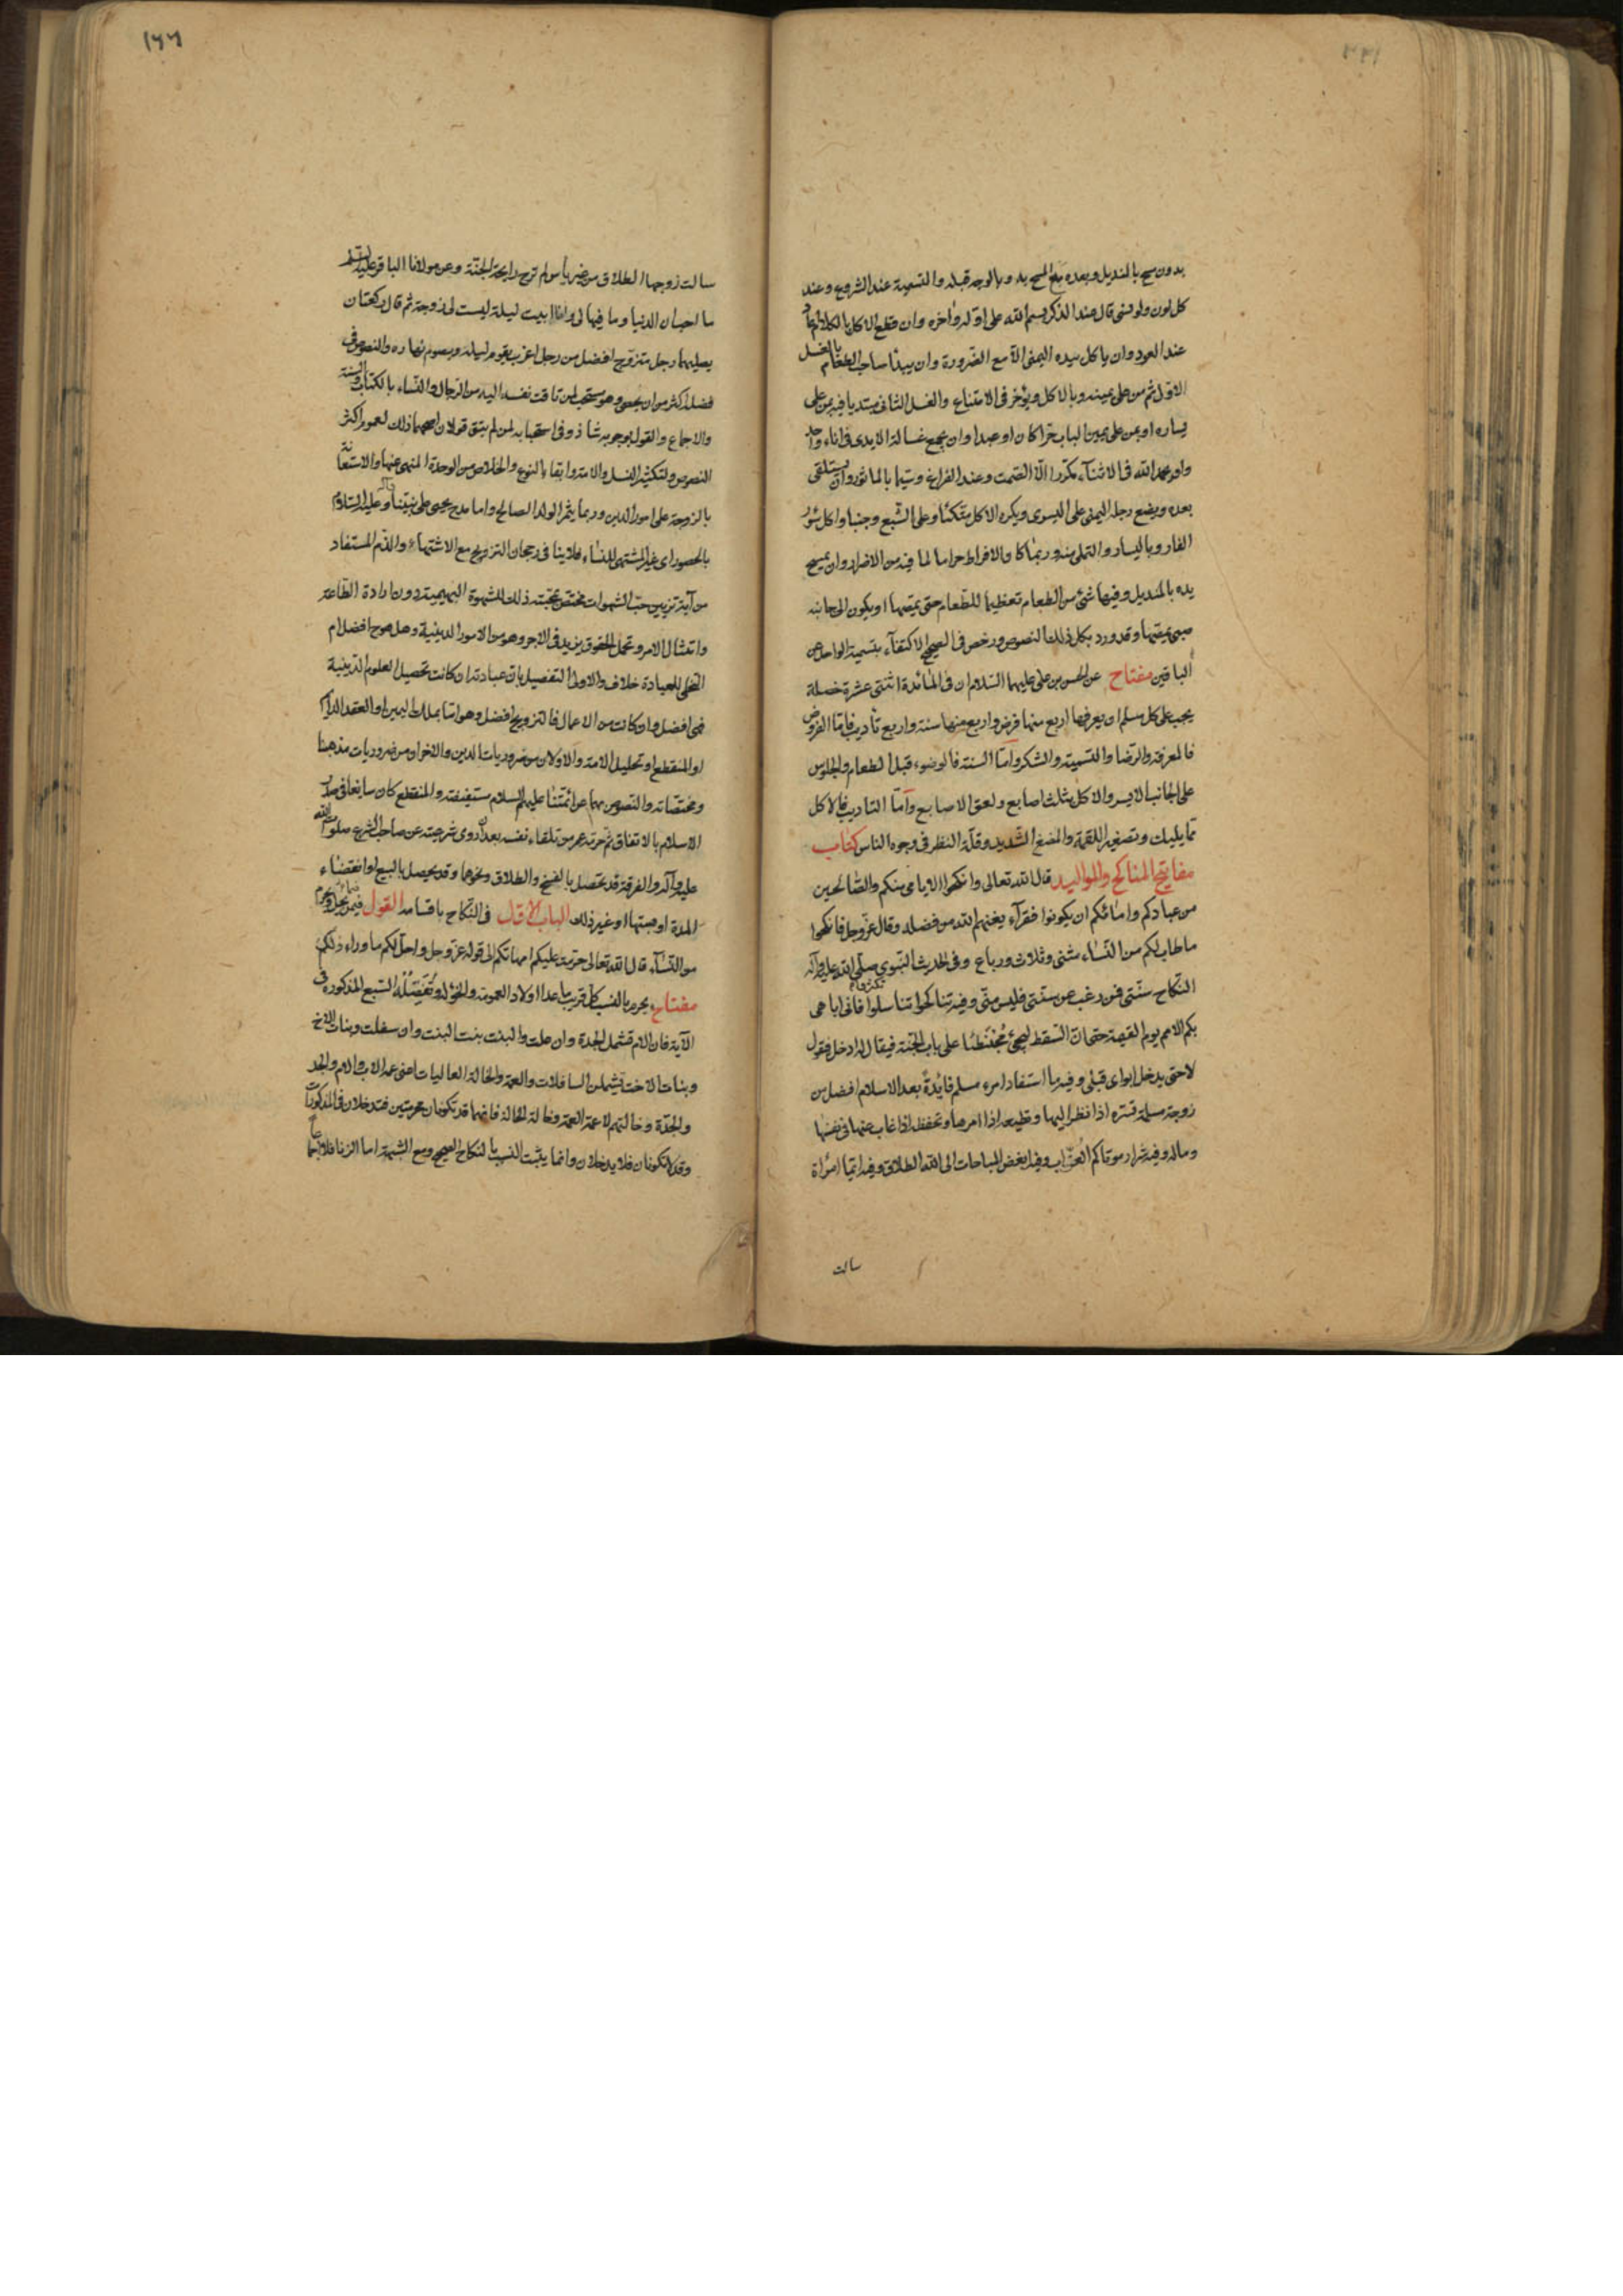 بدون مسح بالمنديل وبعده مع المسح به والوجه قبله والتسمية عند الشروع وعند
كل لون ولو نسي قال عند الذكر بسم الله على اوله واخره وان قطع الاكل بالكلام عاد
عند العود وان ياكل بيده اليمنى الا مع الضرورة وان يبدأ صاحب الطعام بالغسل
الاول ثم من على يمينه وبالاكل ويؤخر في الامتناع والغسل الثاني مبتديا فيه بمن على
يساره او بمن على يمين الباب حرا كان او عبدا وان يجمع غسالة الايدي في اناء واحد
وان يحمد الله في الاثناء مكررا لا الصمت وعند الفراغ وسيما بالماثور وان يستلقى
بعده ويضع رجله اليمنى على اليسرى ويكره الاكل متكئا وعلى الشبع وجنبا واكل سؤر
الفار وباليسار والتملي منه وربما كا والافراط حراما لما فيه من الاضرار وان يمسح
يده بالمنديل وفيها شئ من الطعام تعظيما للطعام حتى يمصها او يكون الى جانبه
صبي يمصها وقد ورد بكل ذلك النصوص ورخص في الصحيح الاكتفاء بتسمية الواحد عن
الباقين مفتاح عن الحسن بن على عليهما السلام ان في المائدة اثنتى عشرة خصلة
يجب على كل مسلم ان يعرفها اربع منها فرض واربع منها سنة واربع تأديب فاما الفرض
فالمعرفة والرضا والتسمية والشكر واما السنة فالوضوء قبل الطعام والجلوس
على الجانب الايسر والاكل بثلث اصابع ولعق الاصابع واما التاديب فالاكل
مما يليك وتصغير اللقمة والمضغ الشديد وقلة النظر في وجوه الناس كتاب
مفاتيح المناكح والمواليد قال الله تعالى وانكحوا الايامى منكم والصالحين
من عبادكم وامائكم ان يكونوا فقراء يغنهم الله من فضله وقال عز وجل فانكحوا
ما طاب لكم من النساء مثنى وثلاث ورباع وفي الحديث النبوي صلى الله عليه وآله
النكاح سنتى فمن رغب عن سنتى فليس منى وفيه تناكحوا تناسلوا فانى اباهى
بكم الامم يوم القيمة حتى ان السقط ليجئ محبنطئا على باب الجنة فيقال له ادخل فيقول
لا حتى يدخل ابواى قبلى وفيه ما استفاد امرء مسلم فايدة بعد الاسلام افضل من
زوجة مسلمة تسره اذا نظر اليها وتطيعه اذا امرها وتحفظه اذا غاب عنها في نفسها
وماله وفيه شرار موتاكم العزاب وفيه ابغض المباحات الى الله الطلاق وفيه ايما امرأة
سالت
١٢٢
سالت زوجها الطلاق من غير بأس لم ترح رايحة الجنة وعن مولانا الباقر عليه السلم
ما احب ان الدنيا وما فيها لى وانا ابيت ليلة ليست لى زوجة ثم قال ركعتان
يصليهما رجل متزوج افضل من رجل اعزب يقوم ليله ويصوم نهاره والنصوص في
فضله اكثر من ان يحصى وهو مستحب لمن تاقت نفسه اليه من الرجال والنساء بالكتاب والسنة
والاجماع والقول بوجوبه شاذ وفى استحبابه لمن لم يتق قولان اصحهما ذلك لعموم اكثر
النصوص ولتكثير النسل والامة وابقاء النوع والخلاص من الوحدة المنهى عنها والاستعانة
بالزوجة على امور الدين وربما يثمر الولد الصالح واما مدح يحيى على نبينا وآله وعليه السلام
بالحصور اى غير المشتهى للنساء فلا ينافى رجحان التزويج مع الاشتهاء والذم المستفاد
من آية تزيين حب الشهوات مختص بمحبته ذلك للشهوة البهيمية دون ارادة الطاعة
وامتثال الامر وتحمل الحقوق يزيد في الاجر وهو من الامور الدينية وهل هو ح افضل ام
التخلى للعبادة خلاف والاولى التفصيل بان عبادته ان كانت تحصيل العلوم الدينية
فهى افضل وان كانت من الاعمال فالتزويج افضل وهو اما بملك اليمين او العقد الدايم
او المنقطع او تحليل الامة والاولان من ضروريات الدين والاخران من ضروريات مذهبنا
ومختصاته والنصوص بهما عن ائمتنا عليهم السلام مستفيضة والمنقطع كان سايغا في صدر
الاسلام بالاتفاق ثم حرمه عمر من تلقاء نفسه بعد ان روى شرعيته عن صاحب الشرع صلوات الله
عليه وآله والفرقة قد تحصل بالفسخ والطلاق ونحوهما وقد يحصل بالبيع او انقضاء
المدة او هبتها او غير ذلك الباب الاول في النكاح باقسامه القول فيمن يحل ويحرم
من النساء قال الله تعالى حرمت عليكم امهاتكم الى قوله عز وجل واحل لكم ما وراء ذلكم
مفتاح يحرم بالنسب كل قريب ما عدا اولاد العمومة والخؤلة وتفصله السبع المذكورة في
الآية فان الام تشمل الجدة وان علت والبنت بنت البنت وان سفلت وبنات الاخ
وبنات الاخت يشملن السافلات والعمة والخالة العاليات اعنى عمة الاب والام والجد
والجدة وخالتهم لا عمة العمة وخالة الخالة فانهما قد تكونان محرمتين فتدخلان في المذكورات
وقد لا تكونان فلا يدخلان وانما يثبت النسب بالنكاح الصحيح ومع الشبهة اما الزنا فلا اجماعا